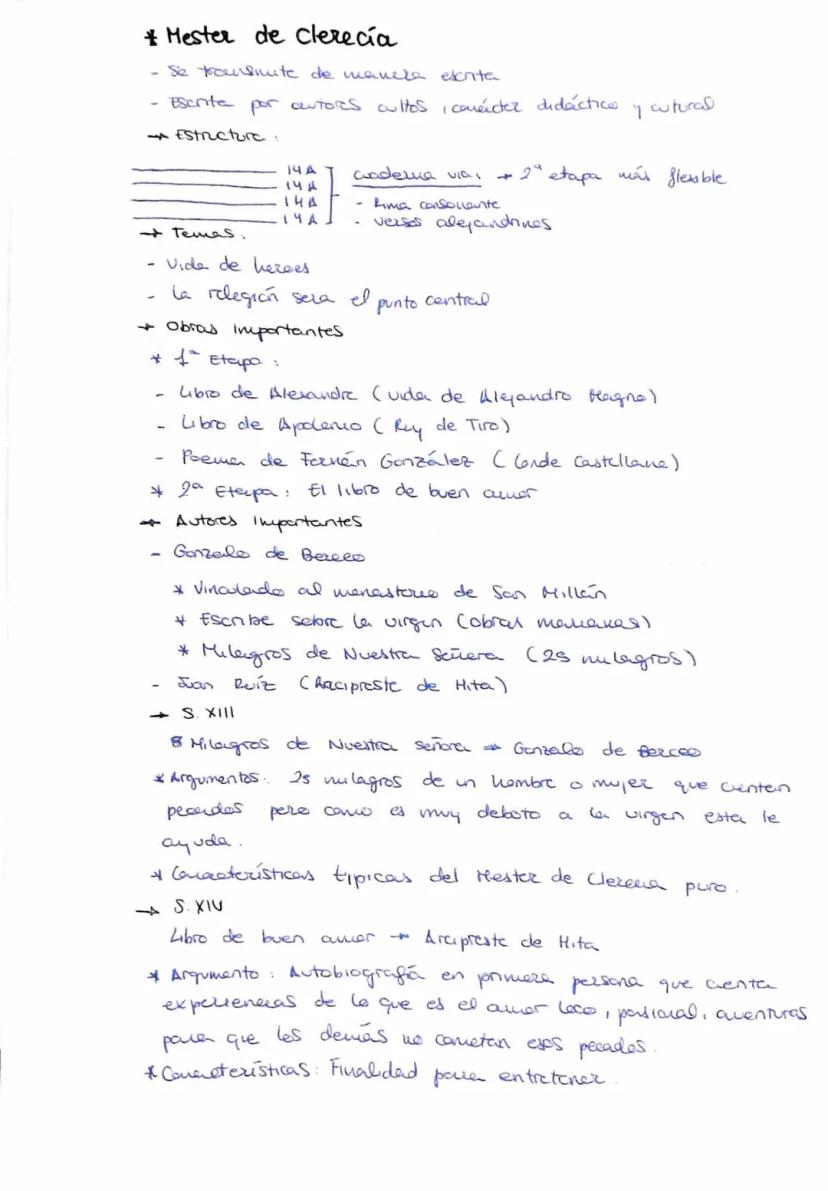 * Mester de Clerecía
- Se transmite de manera escrita
- Escrita por autores cultos, carácter didáctico y cutural
→ Estructura:
14 A
14 A
14 A
14 A
cuaderna via: → 2ª etapa más flexible
- Rima consonante
- versos alejandrinos
→ Temas:
- Vida de heroes
- La relegión sera el punto central
→ Obras importantes
* 1ª Etapa:
- Libro de Alexandre (vida de Alejandro Magno)
- Libro de Apolonio (Rey de Tiro)
- Poema de Fernán González (Conde Castellano)
* 2ª Etapa: El libro de buen amor
→ Autores importantes
- Gonzalo de Berceo
* Vinculado al monasterio de San Millán
* Escribe sobre la virgen (obras marianas)
* Milagros de Nuestra Señora (25 milagros)
- Juan Ruíz (Arcipreste de Hita)
→ S. XIII
Milagros de Nuestra señora → Gonzalo de Berceo
* Argumentos: 25 milagros de un hombre o mujer que cienten
pecados pero como es muy deboto a la virgen esta le
ayuda.
* Características típicas del Mester de Clerecia puro.
→ S. XIV
Libro de buen amor → Arcipreste de Hita
* Argumento: Autobiografía en primera persona que cuenta
experiencias de lo que es el amor loco, pasional, aventuras
para que los demás no cometan esos pecados.
* Características: Finalidad para entretener.